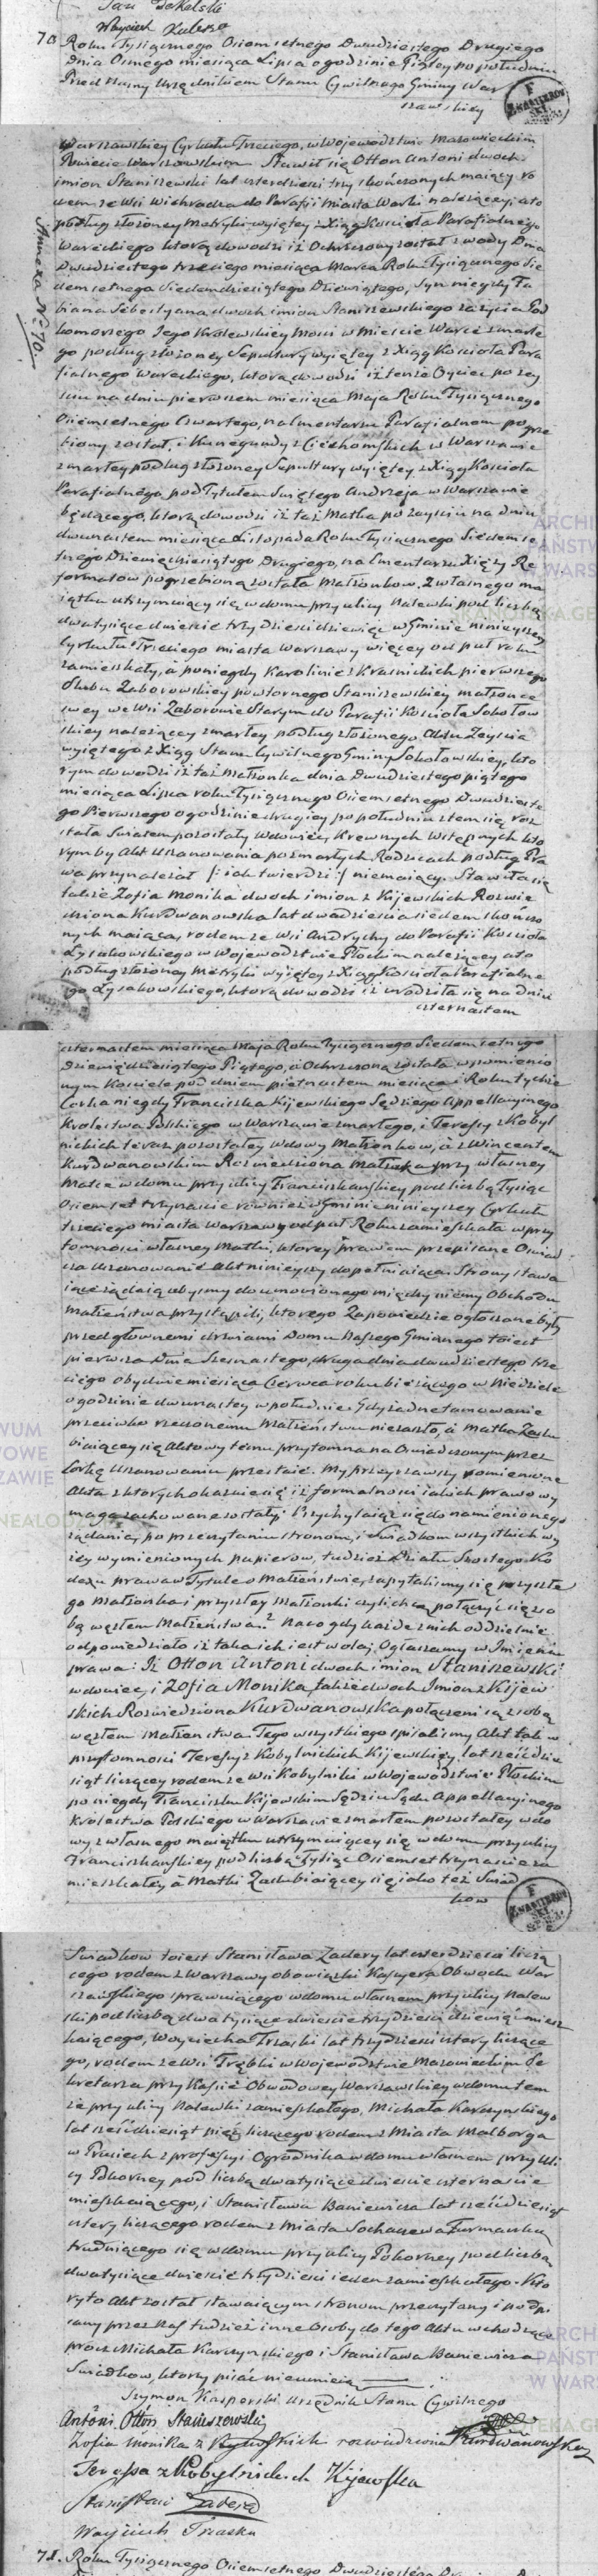 Jan Dekalski
Woyciech Zaleska
70 Roku Tysiącznego Osiemsetnego Dwudziestego Drugiego
Dnia Osmego miesiąca Lipca o godzinie Piątey po południu
Przed Nami Urzędnikiem Stanu Cywilnego Gminy War
szawskiey
Warszawskiey Cyrkułu Trzeciego, w Wojewodztwie Mazowieckim
Powiecie Warszawskim Stawił się Otton Antoni dwoch
imion Staniszewski lat czterdzieści trzy skończonych maiący ro
dem ze Wsi Wichradza do Parafii Miasta Warki należącey, a to
podług złożoney Metryki wyiętey z Xiąg Kościoła Parafialnego
Wareckiego którą dowodzi iż Ochrzczony został z wody Dnia
Dwudziestego trzeciego miesiąca Marca Roku Tysiącznego Sie
demsetnego Siedemdziesiątego Dziewiątego, Syn niegdy Fa
biana Sebestyana dwoch imion Staniszewskiego za życia Pod
komorzego Jego Krolewskiey Mości w Mieście Warce zmarłe
go podług złożoney Sepultury wyiętey z Xiąg Kościoła Para
fialnego Wareckiego, którą dowodzi iż tenże Oyciec po zey
ściu na dniu pierwszem miesiąca Maja Roku Tysiącznego
Osiemsetnego Czwartego, na Cmentarzu Parafialnem pogrze
biony został, i Kunegundy z Ciechomskich w Warszawie
zmarłey podług złożoney Sepultury wyiętey z Xiąg Kościoła
Parafialnego pod Tytułem Swiętego Andrzeja w Warszawie
będącego, którą dowodzi iż taż Matka po zeyściu na dniu
dwunastem miesiąca Listopada Roku Tysiącznego Siedemse
tnego Dziewięćdziesiątego Drugiego, na Cmentarzu Xięży Re
formatow pogrzebioną została Małżonkow. Z własnego ma
iątku utrzymuiący się w domu przy ulicy Nalewki pod liczbą
dwa tysiące dwieście trzydzieści dziewięć w Gminie ninieyszey
Cyrkułu Trzeciego miasta Warszawy więcey od puł roku
zamieszkały, a po niegdy Karolinie z Krasnickich pierwszego
Slubu Zaborowskiey powtornego Staniszewskiey małżonce
swey we Wsi Zaborowie Starym do Parafii Kościoła Sokołow
skiey należącey zmarłey podług złożonego Aktu Zeyścia
wyiętego z Xiąg Stanu Cywilnego Gminy Sokołowskiey, kto
rym dowodzi iż taż Małżonka dnia Dwudziestego piątego
miesiąca Lipca roku Tysiącznego Osiemsetnego Dwudzieste
go Pierwszego o godzinie drugiey po południu z tem się roz
stała Swiatem pozostały Wdowiec, Krewnych Wstępnych kto
rymby Akt Uszanowania po zmarłych Rodzicach podług Pra
wa przynależał /: iak twierdzi :/ niemaiący. Stawiła się
także Zofia Monika dwoch imion z Kijewskich Rozwie
dziona Kurdwanowska lat dwadzieścia siedem skończo
nych maiąca, rodem ze Wsi Andrychy do Parafii Kościoła
Łysakowskiego w Wojewodztwie Płockim należącey a to
podług złożoney Metryki wyiętey z Xiąg Kościoła Parafialne
go Łysakowskiego, którą dowodzi iż urodziła się na dniu
czternastem
Annexa No 70.
czternastem miesiąca Maja Roku Tysiącznego Siedemsetnego
Dziewięćdziesiątego Piątego, a Ochrzczoną została w pomienio
nym Kościele pod dniem piętnastem miesiąca i Roku tychże
Corka niegdy Franciszka Kijewskiego Sędziego Appellacyjnego
Krolestwa Polskiego w Warszawie zmarłego, i Teressy z Kobyl
nickich teraz pozostałey Wdowy Małżonkow, a z Wincentem
Kurdwanowskim Rozwiedziona Małżonka przy własney
Matce w domu przy ulicy Franciszkańskiey pod liczbą Tysiąc
Osiemset trzynaście rownież w Gminie ninieyszey Cyrkułu
trzeciego miasta Warszawy od puł Roku zamieszkała w przy
tomności własney Matki, ktorey Prawem przepisane Oświad
cza Uszanowanie Akt ninieyszy dopełniaiąca. Strony stawa
iące żądaią abyśmy do umowionego między niemi Obchodu
Małżeństwa przystąpili, ktorego Zapowiedzie ogłoszone były
przed głownemi drzwiami Domu Naszego Gminnego to iest
pierwsza Dnia Szesnastego, druga dnia dwudziestego trze
ciego obydwie miesiąca Czerwca roku bieżącego w Niedziele
o godzinie dwunastey w południe. Gdy żadne tamowanie
przeciwko rzeczonemu Małżeństwu nie zaszło, a Matka Zaślu
biaiącey się Aktowy temu przytomna na Oświadczonym przez
Corkę Uszanowaniu przestaie. My przeyrzawszy pomienione
Akta z ktorych okazuie się iż formalności iakich prawo wy
maga zachowane zostały Przychylaiąc się do namienionego
żądania, po przeczytaniu stronom, i Swiadkom wszystkich wy
żey wymienionych papierow, tudzież Działu Szostego Ko
dexu prawa w Tytule o Małżeństwie, zapytaliśmy się przyszłe
go Małżonka i przyszłey Małżonki czyli chcą połączyć się z so
bą węzłem Małżeństwa? Na co gdy każde z nich oddzielnie
odpowiedziało iż taka ich iest wola; Ogłaszamy w Imieniu
prawa: Iż Otton Antoni dwoch imion Staniszewski
wdowiec, i Zofia Monika także dwoch Imion z Kijew
skich Rozwiedziona Kurdwanowska połączeni są z sobą
węzłem Małżeństwa. Tego wszystkiego spisaliśmy Akt tak w
przytomności Teressy z Kobylnickich Kijewskiey, lat sześćdzie
siąt liczącey rodem ze Wsi Kobylniki w Wojewodztwie Płockim
po niegdy Franciszku Kijewskim Sędziu Sądu Appellacyinego
Krolestwa Polskiego w Warszawie zmarłem pozostałey wdo
wy z własnego maiątku utrzymuiącey się w domu przy ulicy
Franciszkańskiey pod liczbą Tysiąc Osiemset trzynaście za
mieszkałey a Matki Zaślubiaiącey się iako też Swiad
kow
Swiadkow to iest Stanisława Zadery lat czterdzieści liczą
cego rodem z Warszawy obowiązki Kassyera Obwodu War
szawskiego sprawuiącego w domu własnem przy ulicy Nalew
ki pod liczbą dwa tysiące dwieście trzydzieści dziewięć miesz
kaiącego, Woyciecha Trzaski lat trzydzieści cztery liczące
go, rodem ze Wsi Trębki w Wojewodztwie Mazowieckim Se
kretarza przy Kassie Obwodowey Warszawskiey w domu tem
że przy ulicy Nalewki zamieszkałego, Michała Karczynskiego
lat sześćdziesiąt pięć liczącego rodem z Miasta Malborga
w Prusiech z professyi Ogrodnika w domu własnem przy uli
cy Pokorney pod liczbą dwa tysiące dwieście czternaście
mieszkaiącego, i Stanisława Baniewicza lat sześćdziesiąt
cztery liczącego rodem z Miasta Sochaczewa Furmanką
trudniącego się w domu przy ulicy Pokorney pod liczbą
dwa tysiące dwieście trzydzieści ieden zamieszkałego. Kto
ry to Akt został stawaiącym stronom przeczytany i podpi
sany przez Nas tudzież inne Osoby do tego Aktu wchodzące
procz Michała Karczynskiego i Stanisława Baniewicza
Swiadkow, ktorzy pisać nieumieią
Szymon Kasperski Urzędnik Stanu Cywilnego
Antoni Otton Staniszewski
Zofia Monika z Kijewskich rozwiedziona Kurdwanowska
Teressa z Kobylnickich Kijewska
Stanisław Zadera
Woyciech Trzaska
71. Roku Tysiącznego Osiemsetnego Dwudziestego